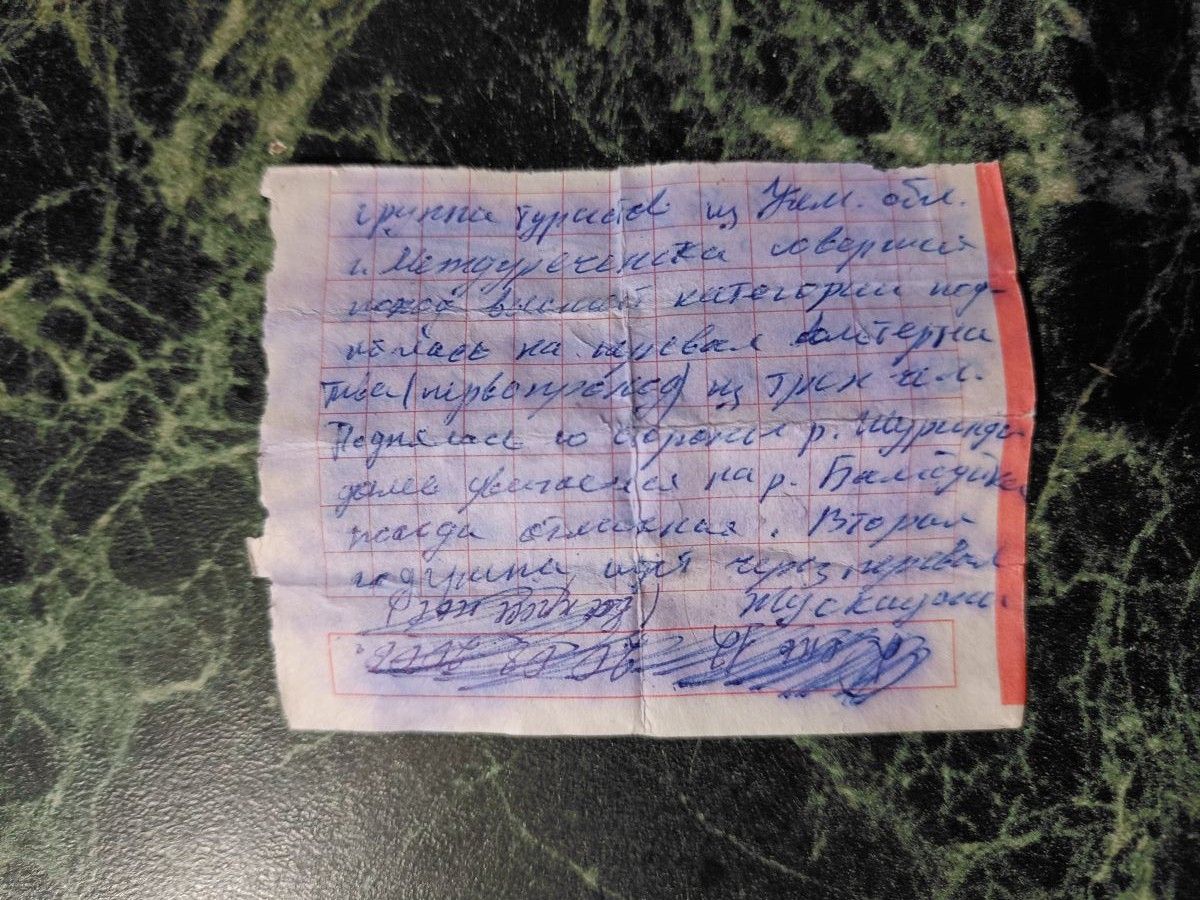 группа туристов из Кем. обл.
г. Междуреченска совершая
поход высшей категории под-
нялась на перевал Альтерна
тва (первопроход) из трех чел.
Поднялась со стороны р.
далее двигаемся на р.
погода отличная. Вторая
подгруппа идет через перевал